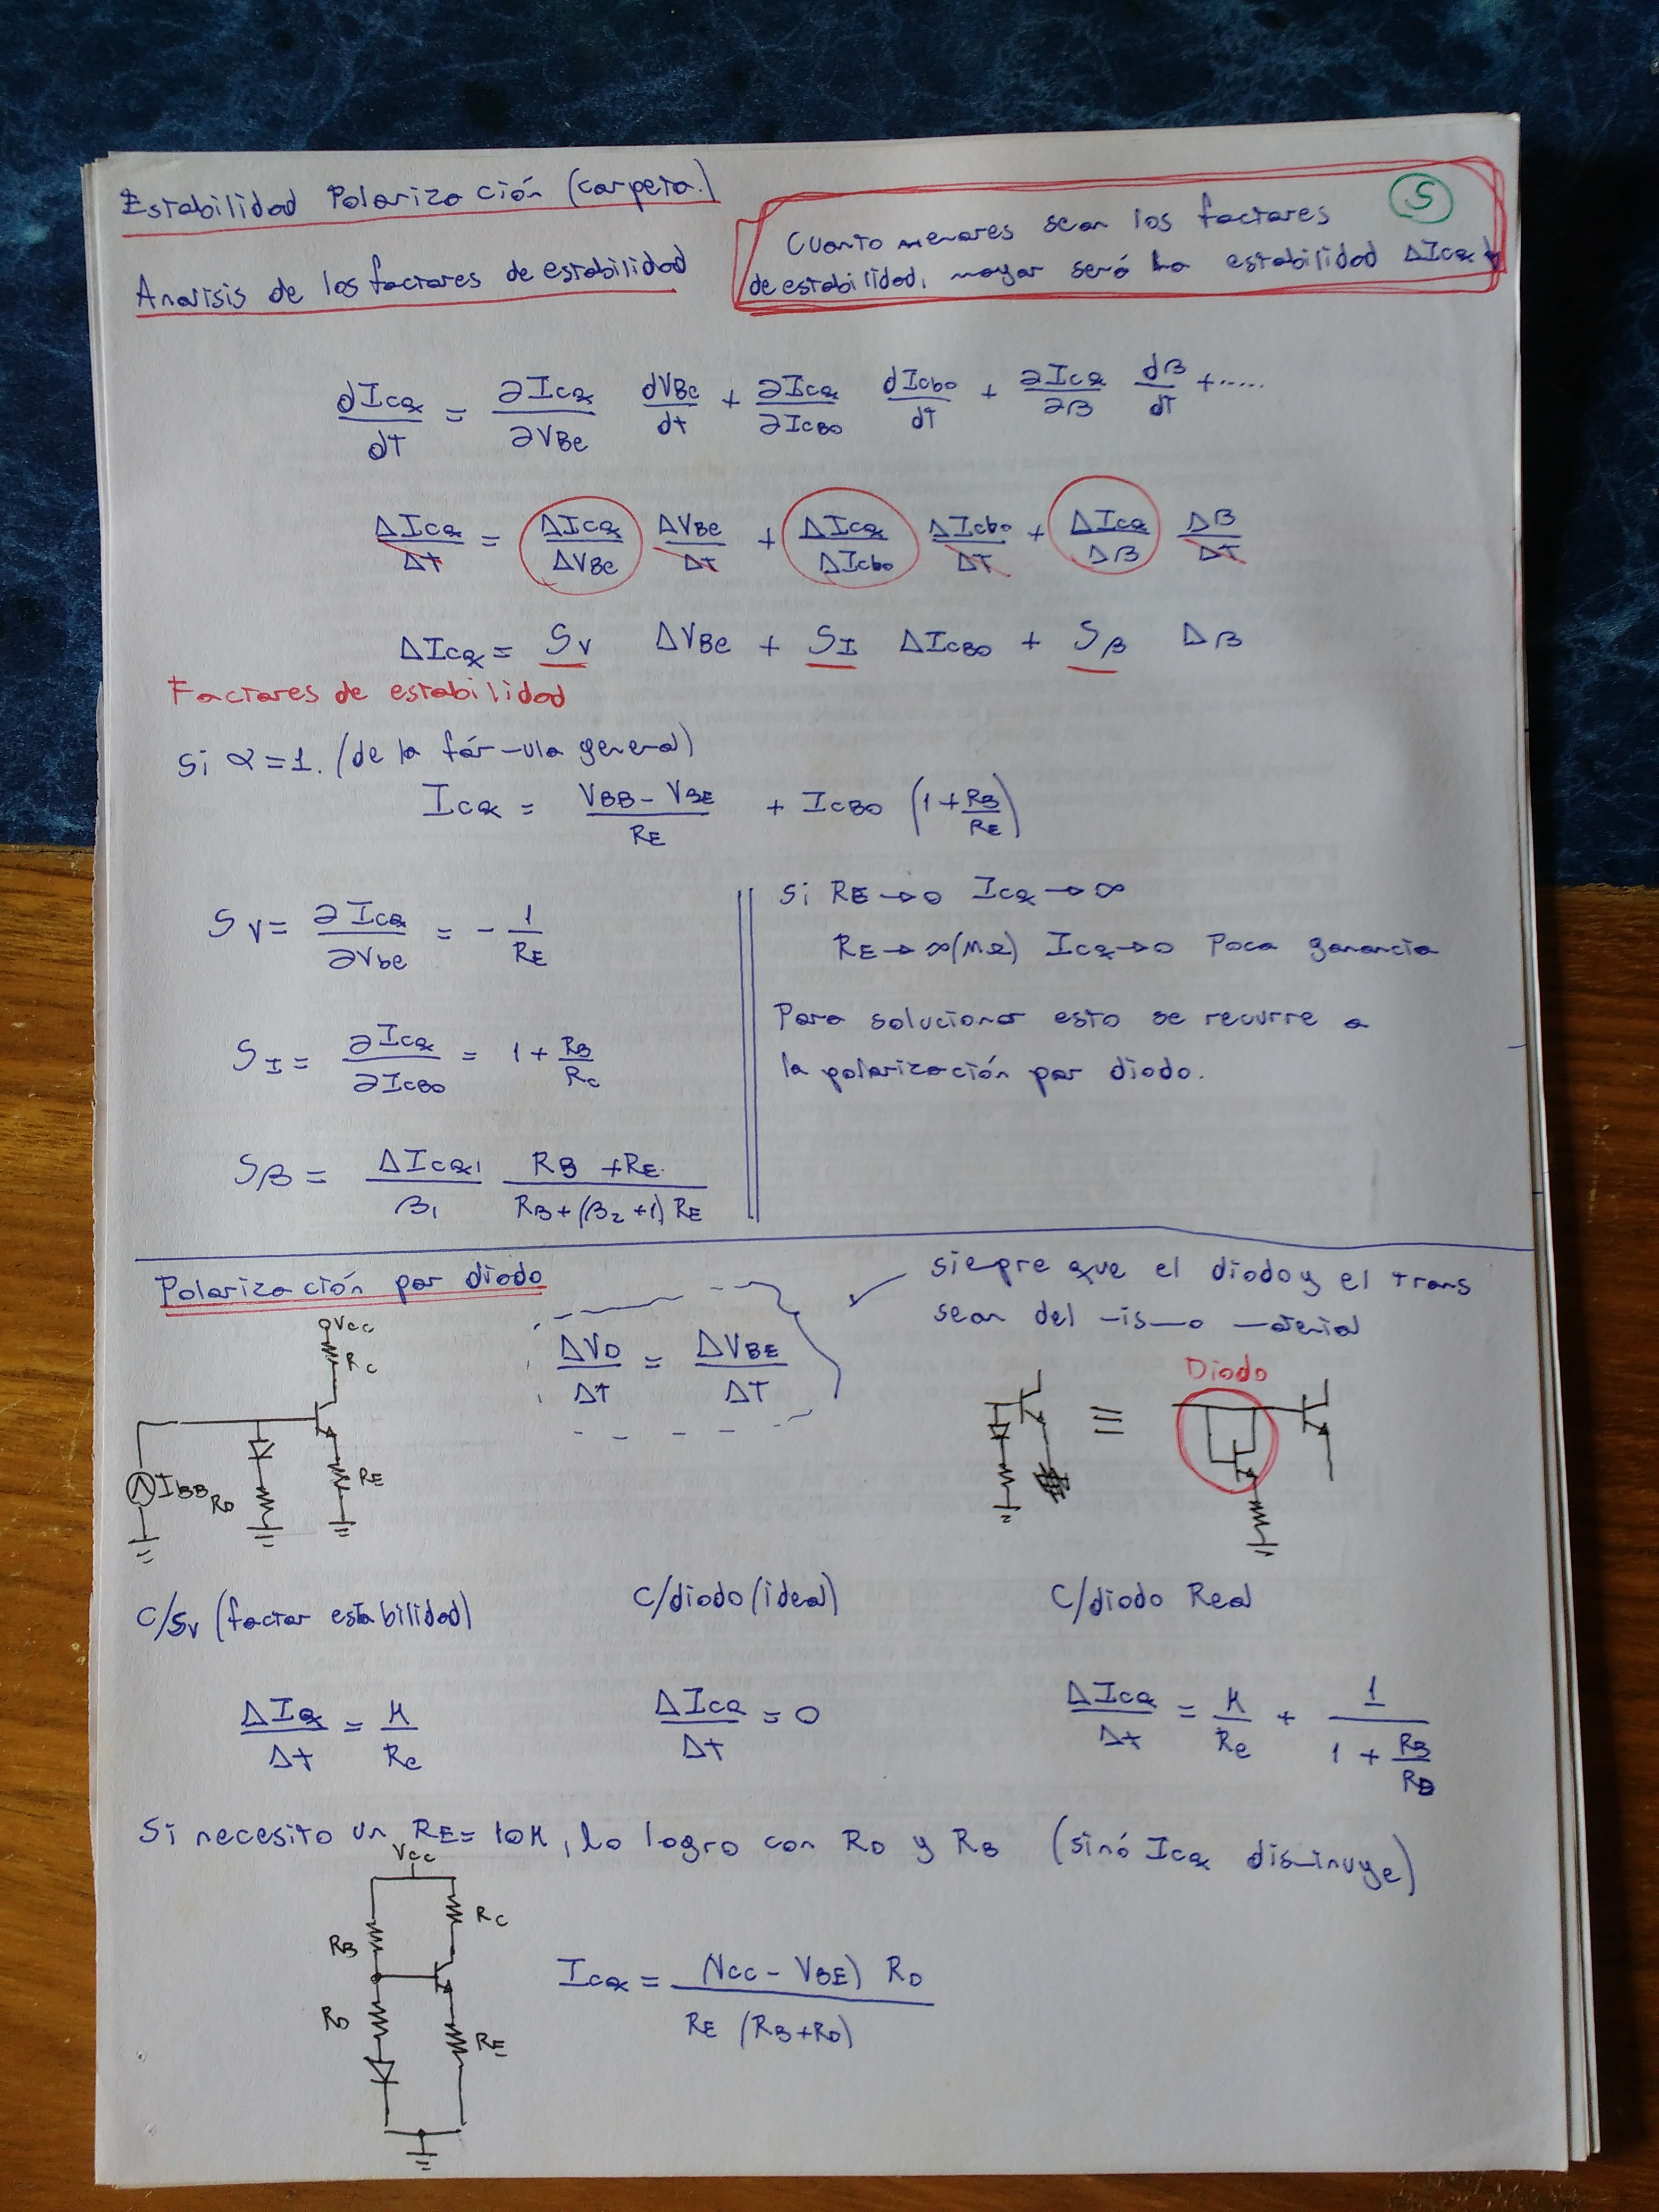 Estabilidad Polarización (carpeta.)
S
Cuanto menores sean los factores
de estabilidad, mayor será la estabilidad ΔIcQ ↓
Analisis de los factores de estabilidad
dIcQ/dT = ∂IcQ/∂VBe dVBe/dt + ∂IcQ/∂ICBO dIcbo/dT + ∂IcQ/∂β dβ/dT + .....
ΔIcQ/Δt = ΔIcQ/ΔVBe ΔVBe/Δt + ΔIcQ/ΔIcbo ΔIcbo/ΔT + ΔIcQ/Δβ Δβ/ΔT
ΔIcQ = SV ΔVBe + SI ΔICBO + Sβ Δβ
Factores de estabilidad
Si α = 1. (de la fórmula general)
IcQ = (VBB - VBE)/RE + ICBO (1 + RB/RE)
SV = ∂IcQ/∂Vbe = - 1/RE
SI = ∂IcQ/∂ICBO = 1 + RB/Rc
Sβ = ΔIcQ1/β1 (RB + RE.)/(RB + (β2 + 1) RE)
Si RE → 0 IcQ → ∞
RE → ∞ (MΩ) IcQ → 0 Poca ganancia
Para solucionar esto se recurre a
la polarización por diodo.
Polarización por diodo
siepre que el diodo y el trans
sean del mismo material
ΔVD/ΔT = ΔVBE/ΔT
Vcc
Rc
RE
IBB
RD
Diodo
≡
C/SV (factor estabilidad)
C/diodo (ideal)
C/diodo Real
ΔIQ/Δt = K/Re
ΔIcQ/Δt = 0
ΔIcQ/Δt = K/Re + 1/(1 + RB/RD)
Si necesito un RE = 10K, lo logro con RD y RB (sinó IcQ disminuye)
Vcc
Rc
RB
RD
RE
IcQ = (Vcc - VBE) RD / RE (RB + RD)